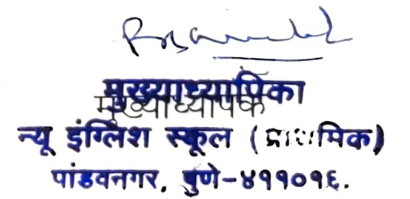 मुख्याध्यापिका
मुख्याध्यापक
न्यू इंग्लिश स्कूल (प्राथमिक)
पांडवनगर, पुणे-४११०१६.